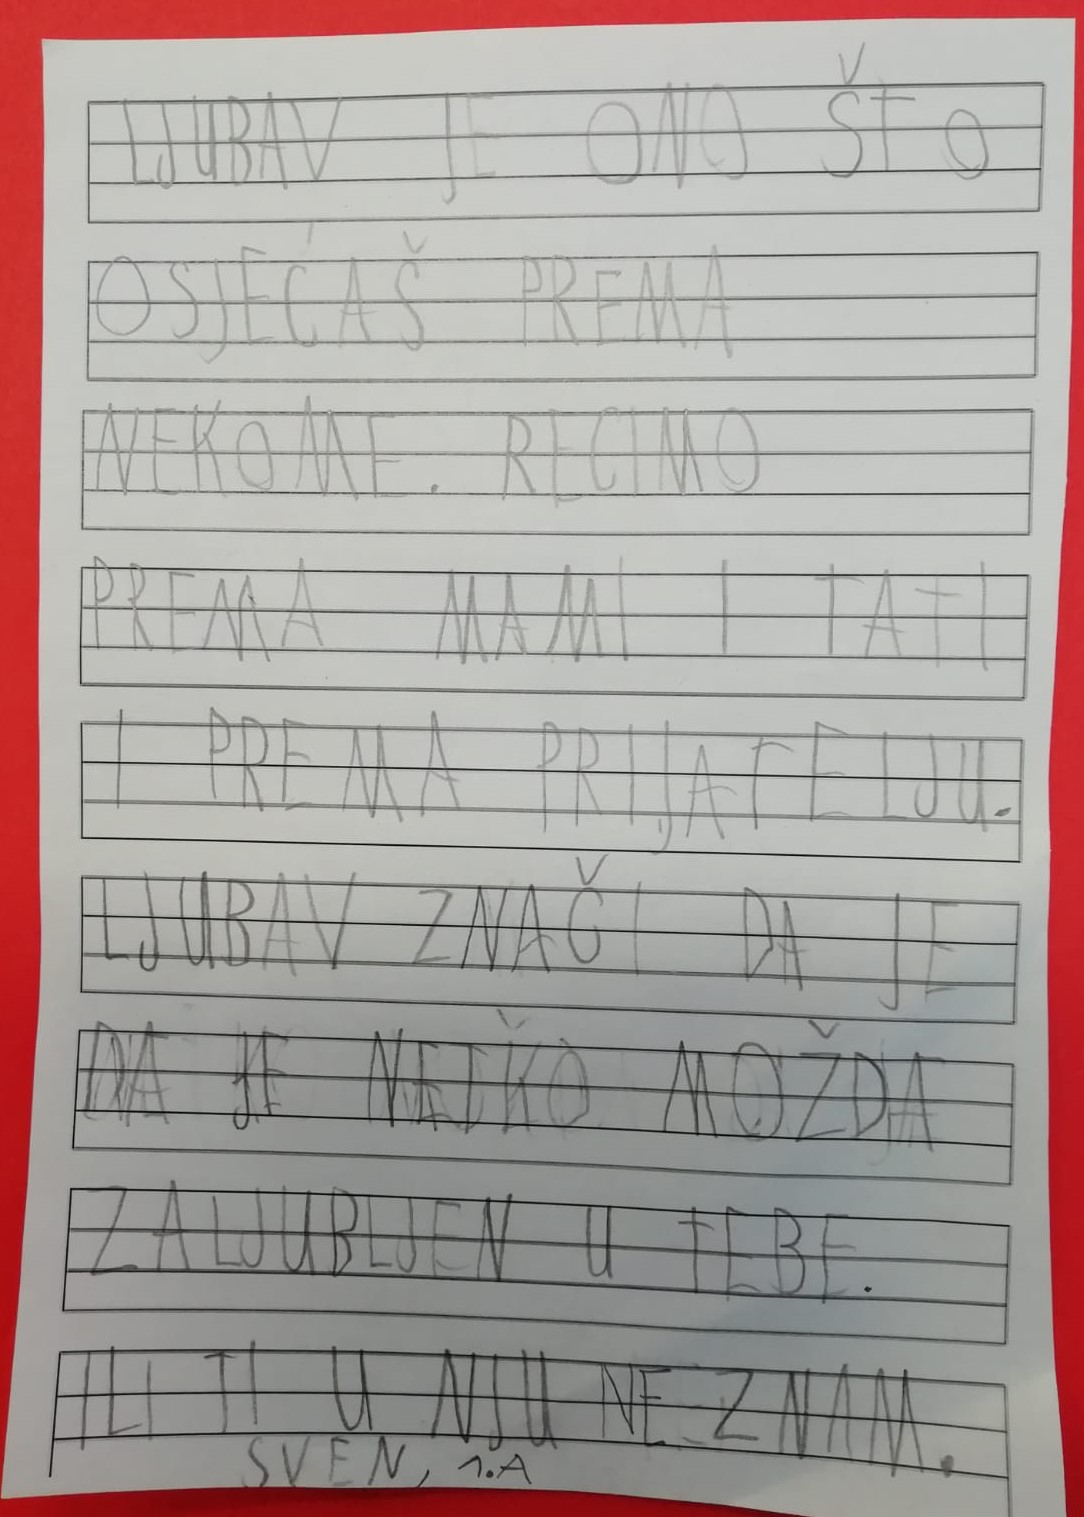 LJUBAV JE ONO ŠTO
OSJEĆAŠ PREMA
NEKOME. RECIMO
PREMA MAMI I TATI
I PREMA PRIJATELJU.
LJUBAV ZNAČI DA JE
DA JE NETKO MOŽDA
ZALJUBLJEN U TEBE.
ILI TI U NJU NE ZNAM.
SVEN, 1.A